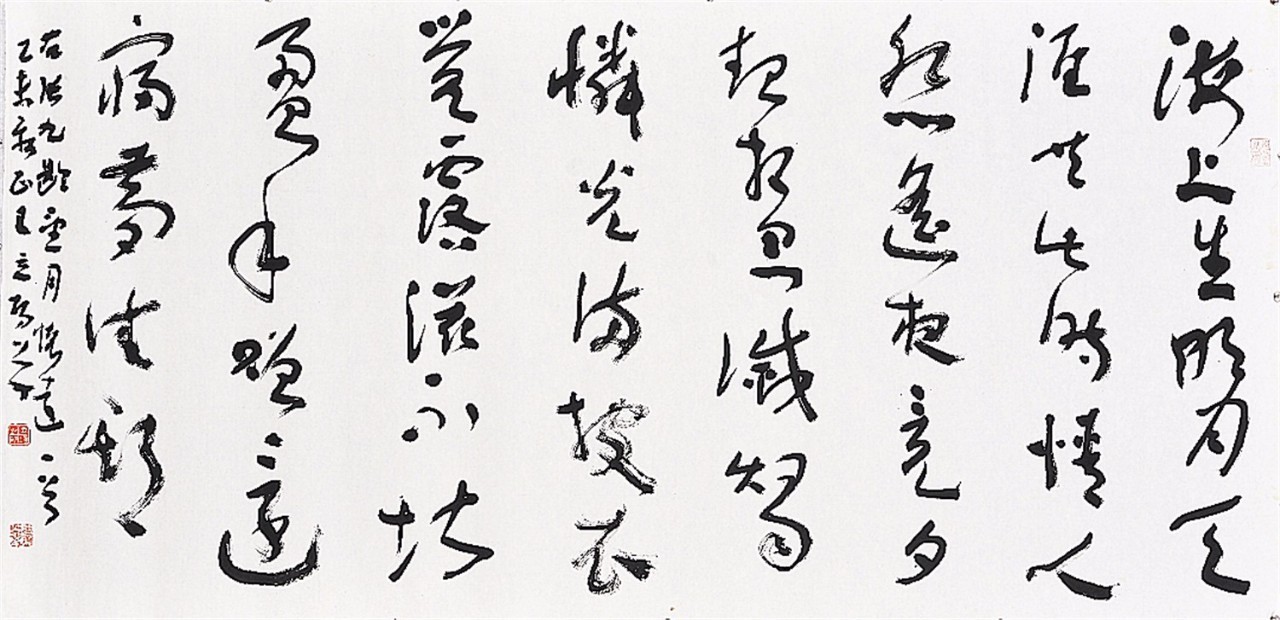 海上生明月天
涯共此時情人
怨遙夜竟夕
起相思滅燭
憐光滿披衣
覺露滋不堪
盈手贈還
寢夢佳期
右張九齡望月懷遠一首
乙未秋